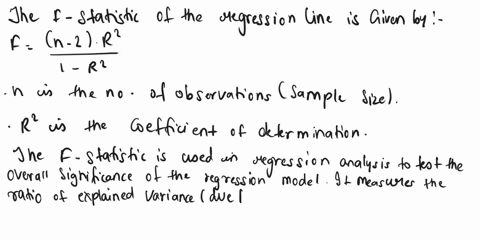 The F-statistic of the regression line is Given by :-
F = (n-2).R²
1 - R²
. n is the no. of observations (Sample Size).
. R² is the Coefficient of determination.
The F-statistic is used in regression analysis to test the
overall significance of the regression model. It measures the
ratio of explained variance (due